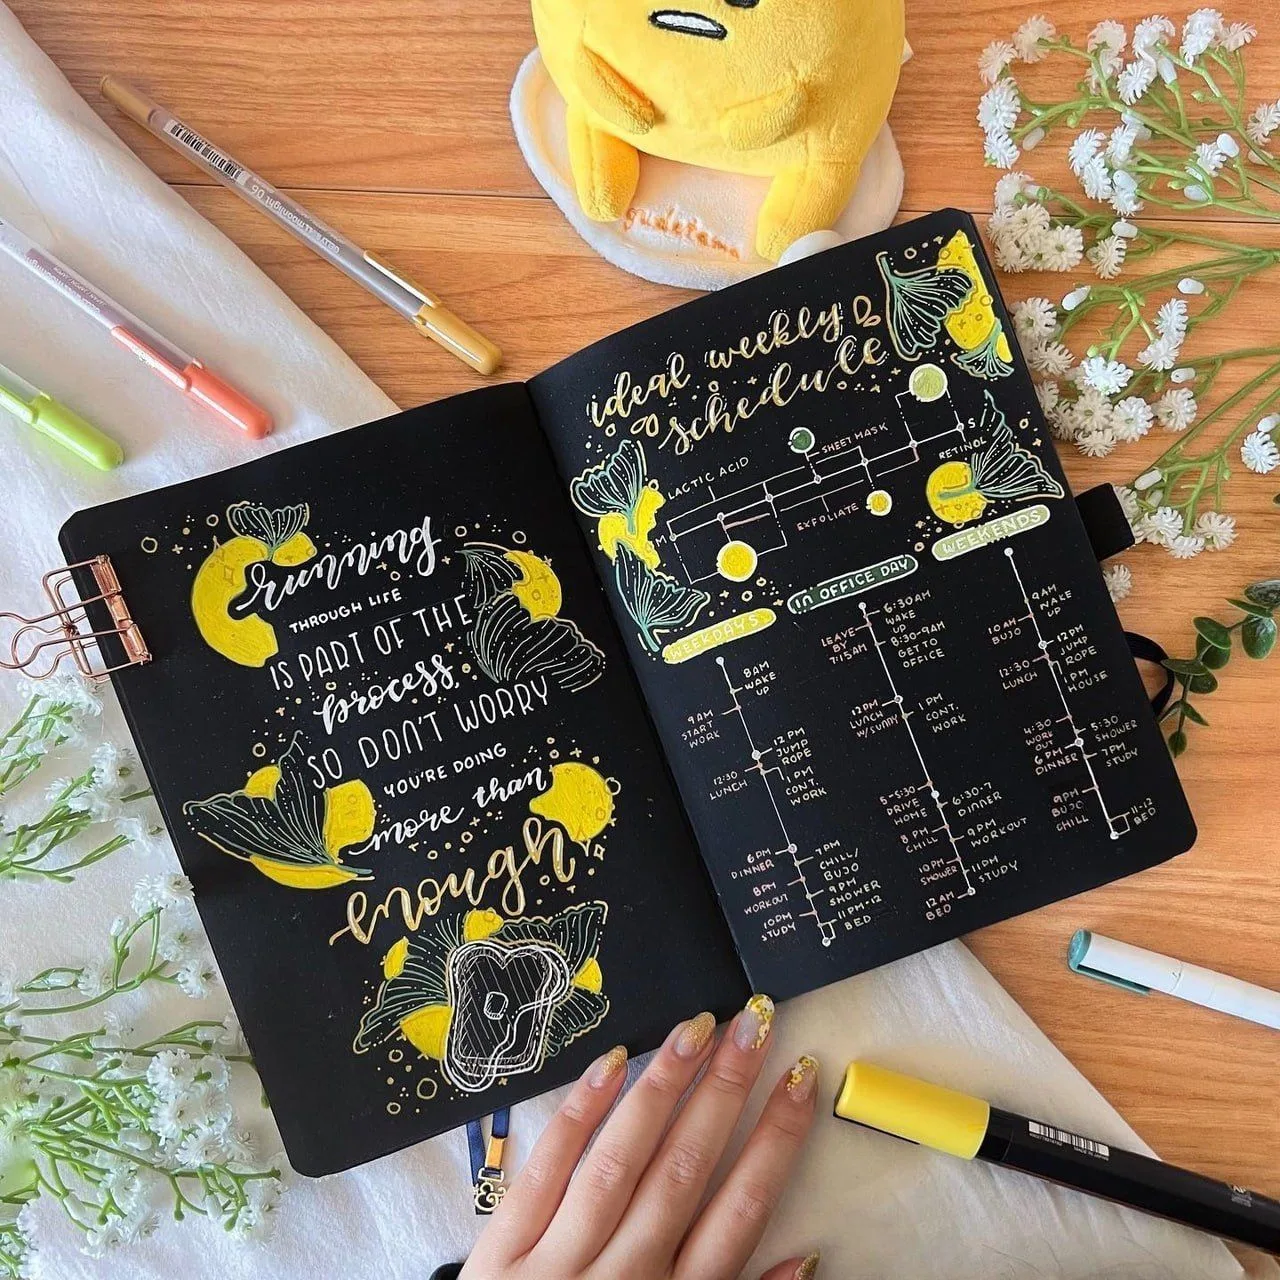 gudetama
GELLY ROLL moonlight 06
running
THROUGH LIFE
IS PART OF THE
process,
SO DON'T WORRY
YOU'RE DOING
more than
enough
ideal weekly
schedule
LACTIC ACID
SHEET MASK
M
S
EXFOLIATE
RETINOL
WEEKDAYS
8AM
WAKE
UP
9AM
START
WORK
12PM
JUMP
ROPE
12:30
LUNCH
1PM
CONT.
WORK
6PM
DINNER
7PM
CHILL/
BUJO
8PM
WORKOUT
9PM
SHOWER
10PM
STUDY
11PM-12
BED
IN OFFICE DAY
6:30AM
WAKE
UP
LEAVE
BY
7:15AM
8:30-9AM
GET TO
OFFICE
12PM
LUNCH
W/SUNNY
1PM
CONT.
WORK
5-5:30
DRIVE
HOME
6:30-7
DINNER
8PM
CHILL
9PM
WORKOUT
10PM
SHOWER
11PM
STUDY
12AM
BED
WEEKENDS
9AM
WAKE
UP
10AM
BUJO
12PM
JUMP
ROPE
12:30
LUNCH
1PM
HOUSE
4:30
WORK
OUT
5:30
SHOWER
6PM
DINNER
7PM
STUDY
9PM
BUJO
CHILL
11-12
BED